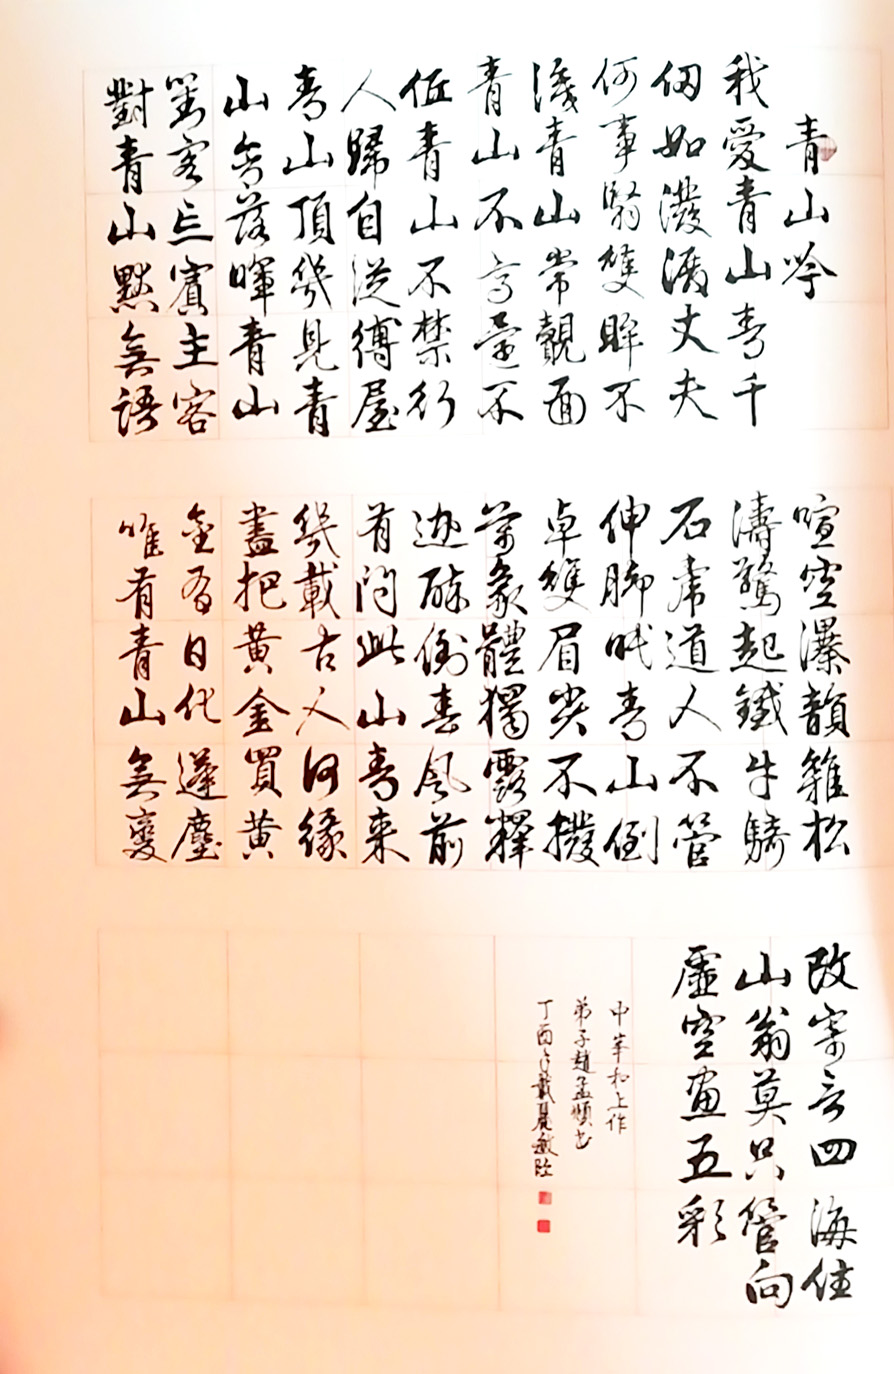 青山吟
我愛青山青千
仞如潑 丈夫
何事翳雙眸不
識青山常覿面
青山不高量不
低青山不禁行
人歸自從縛屋
青山頂幾見青
山無落暉青山
對客忘賓主客
對青山默無語
喧空瀑韻雜松
濤驚起鐵牛騎
石虎道人不管
伸脚眠青山倒
卓雙眉尖不撥
萬象體獨露釋
迦醉倒春風前
有問此山青来
幾載古人何緣
盡把黄金買黄
金有日化 塵
唯有青山無變
改寄言四海住
山翁莫只管向
虛空畫五彩
中峯和上作
弟子趙孟頫書
丁酉 戴 敏臨